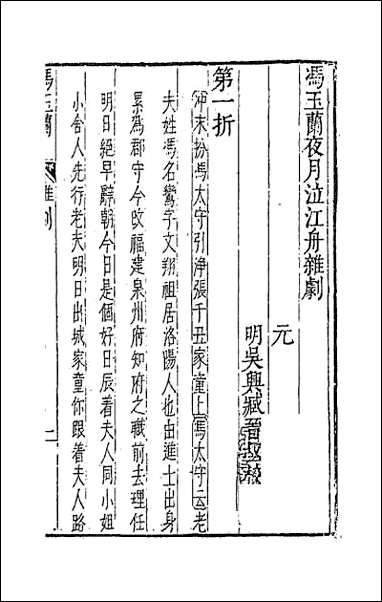 馮玉蘭夜月泣江舟雜劇
元
明吳興臧晉叔校
第一折
冲末扮馮太守引淨張千丑家童上馮太守云老
夫姓馮名鸞字文翔祖居洛陽人也由進士出身
累爲郡守今改福建泉州府知府之職前去理任
明日絕早辭朝今日是個好日辰着夫人同小姐
小舍人先行老夫明日出城家童你跟着夫人路
馮玉蘭
雜劇
一